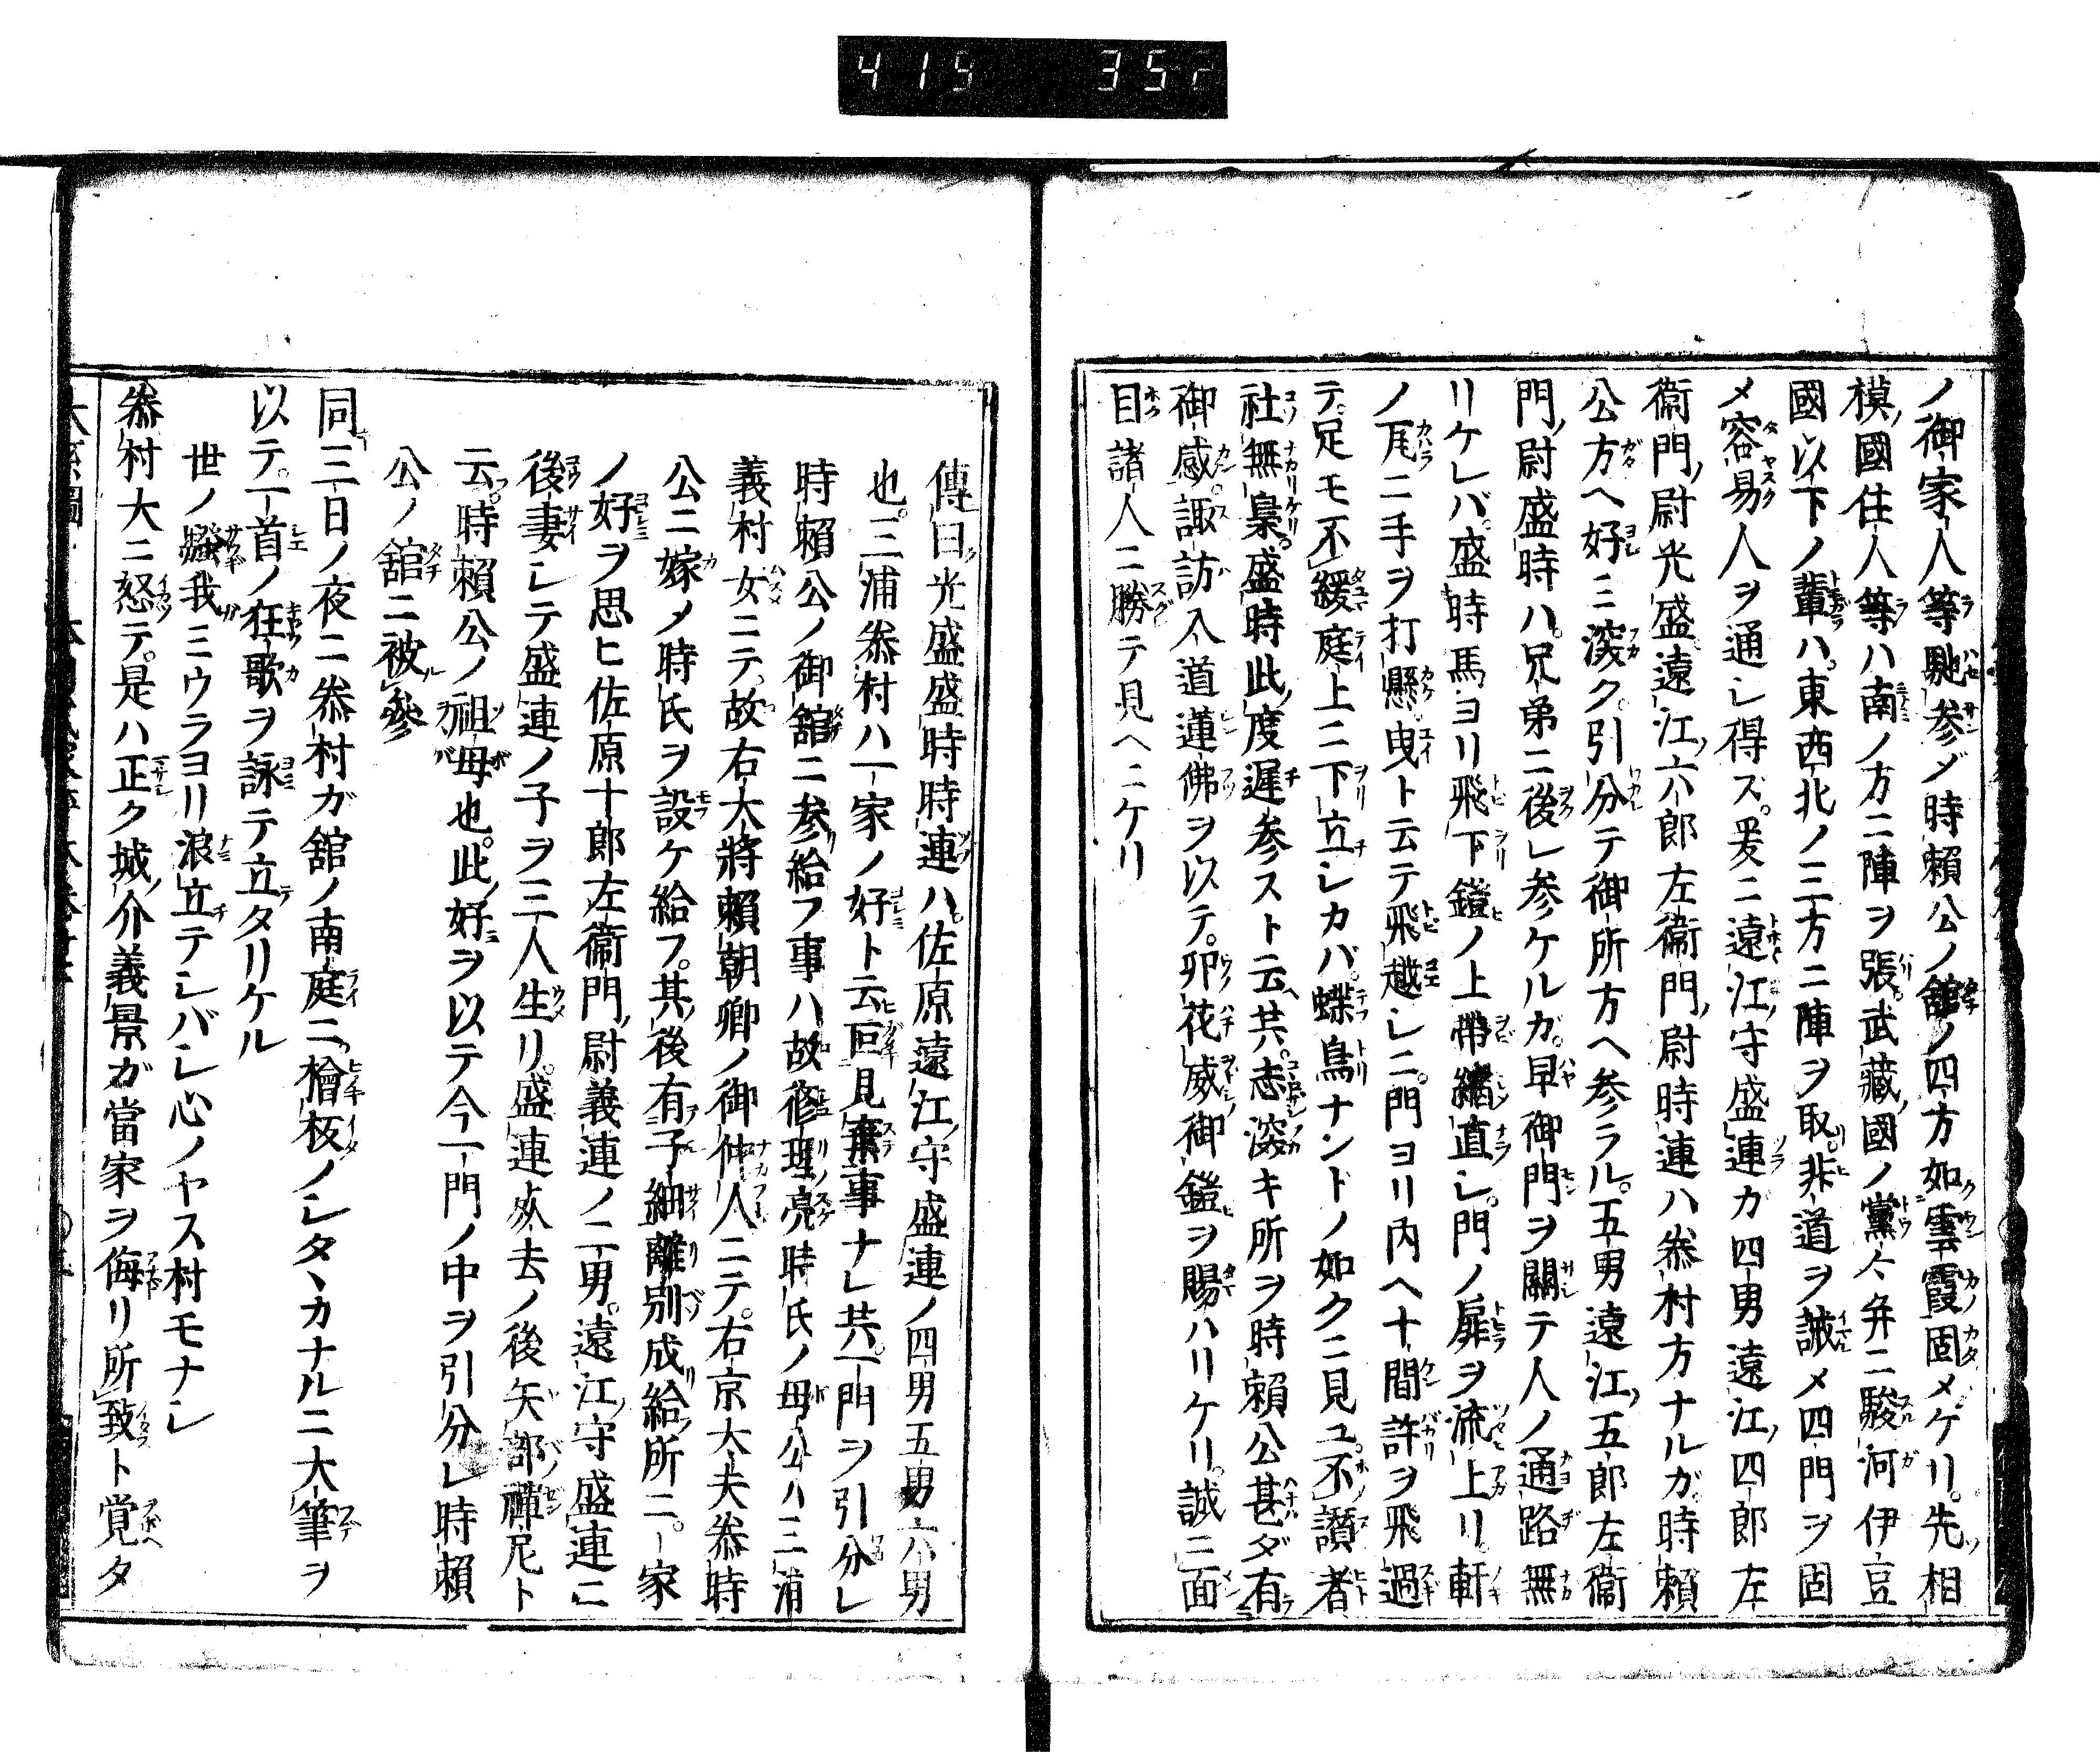 419 352
ノ御家人等馳参ジ時頼公ノ舘ノ四方如雲霞固メケリ。先相
模國住人等ハ南ノ方ニ陣ヲ張。武藏國ノ黨々并ニ駿河伊豆
國以下ノ輩ハ。東西北ノ三方ニ陣ヲ取。非道ヲ誡メ四門ヲ固
メ容易人ヲ通シ得ズ。爰ニ遠江守盛連ガ四男遠江四郎左
衞門尉光盛遠江六郎左衞門尉時連ハ泰村方ナルガ。時頼
公方ヘ好ミ深ク。引分テ御所方ヘ参ラル。五男遠江五郎左衞
門尉盛時ハ。兄弟ニ後レ参ケルガ。早御門ヲ關テ人ノ通路無
リケレバ。盛時馬ヨリ飛下鎧ノ上帯緒直シ。門ノ扉ヲ流上リ。軒
ノ尾ニ手ヲ打懸曳ト云テ飛越シニ。門ヨリ内ヘ十間許ヲ飛過
テ。足モ不緩庭上ニ下立シカバ。蝶鳥ナントノ如クニ見ユ。不讃者
社無梟。盛時此度遅参スト云共。志深キ所ヲ時頼公甚ダ有
御感。諏訪入道蓮佛ヲ以テ。卯花威御鎧ヲ賜ハリケリ。誠ニ面
目諸人ニ勝テ見ヘニケリ
傳曰光盛盛時時連ハ。佐原遠江守盛連ノ四男五男六男
也。三浦泰村ハ一家ノ好ト云叵見棄事ナレ共。一門ヲ引分レ
時頼公ノ御舘ニ参給フ事ハ故修理亮時氏ノ母公ハ三浦
義村女ニテ。故右大將頼朝卿ノ御仲人ニテ。右京大夫泰時
公ニ嫁メ時氏ヲ設ケ給フ。其後有子細離別成給所ニ。一家
ノ好ヲ思ヒ佐原十郎左衞門尉義連ノ二男。遠江守盛連ニ
後妻シテ盛連ノ子ヲ三人生リ。盛連死去ノ後矢部禪尼ト
云。時頼公ノ祖母也。此好ヲ以テ今一門ノ中ヲ引分レ時頼
公ノ舘ニ被參
同三日ノ夜ニ泰村ガ舘ノ南庭ニ檜板ノシタヽカナルニ大筆ヲ
以テ。一首ノ狂歌ヲ詠テ立タリケル
世ノ騒我ミウラヨリ浪立テシバシ心ノヤス村モナシ
泰村大ニ怒テ。是ハ正ク城介義景ガ當家ヲ侮リ所致ト覚タ